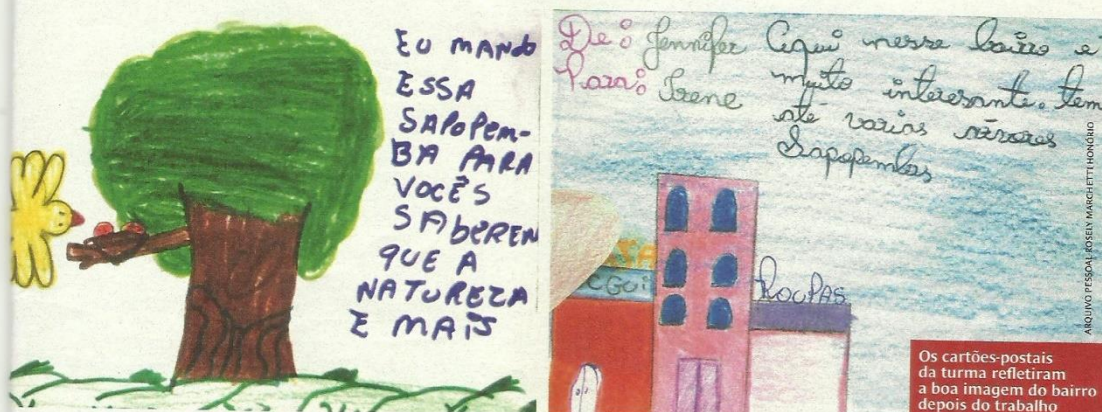 EU MANDO
ESSA
SAPOPEM-
BA PARA
VOCÊS
SABEREM
QUE A
NATUREZA
E MAIS
De: Jennifer
Para: Irene
Aqui nesse bairro e'
muito interesante. tem
até varias árvores
Sapopembas
ROUPAS
ARQUIVO PESSOAL ROSELY MARCHETTI HONÓRIO
Os cartões-postais
da turma refletiram
a boa imagem do bairro
depois do trabalho